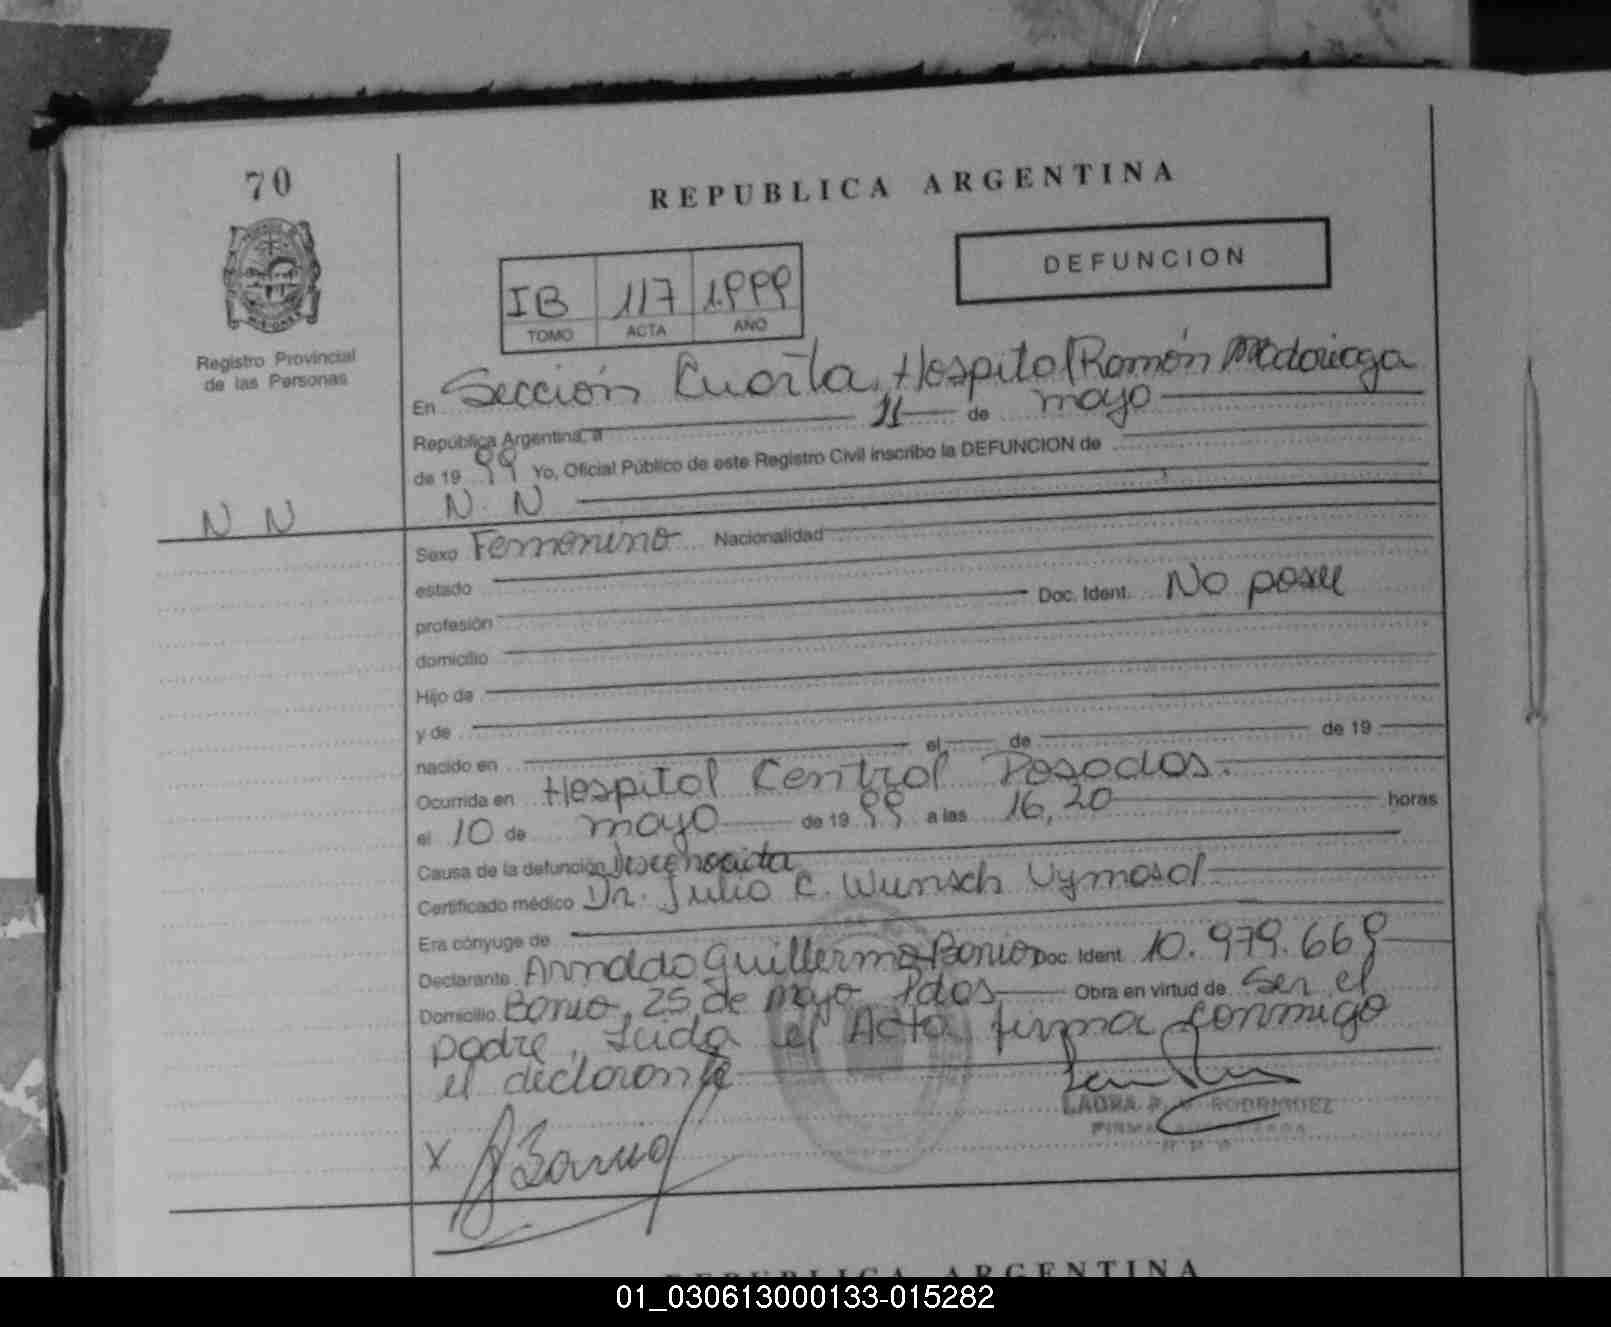 70
REPUBLICA ARGENTINA
DEFUNCION
IB 117 1.999
TOMO ACTA AÑO
Registro Provincial
de las Personas
En Sección Cuarta, Hospital Ramón Madariaga
República Argentina, a 11 de mayo
de 19 99 Yo, Oficial Público de este Registro Civil inscribo la DEFUNCION de
N N
N. N
Sexo Femenino Nacionalidad
estado
profesión Doc. Ident. No posee
domicilio
Hijo de
y de
nacido en el de de 19
Ocurrida en Hospital Central Posadas.
el 10 de mayo de 19 99 a las 16,20 horas
Causa de la defunción Desconocida
Certificado médico Dr. Julio C. Wunsch Uymasal
Era cónyuge de
Declarante Arnoldo Guillermo Doc. Ident. 10.979.669
Domicilio Barrio, 25 de Mayo Pdas Obra en virtud de Ser el
padre, Leida el Acta firma conmigo
el declarante
X
LAURA RODRIGUEZ
REPUBLICA ARGENTINA
01_030613000133-015282